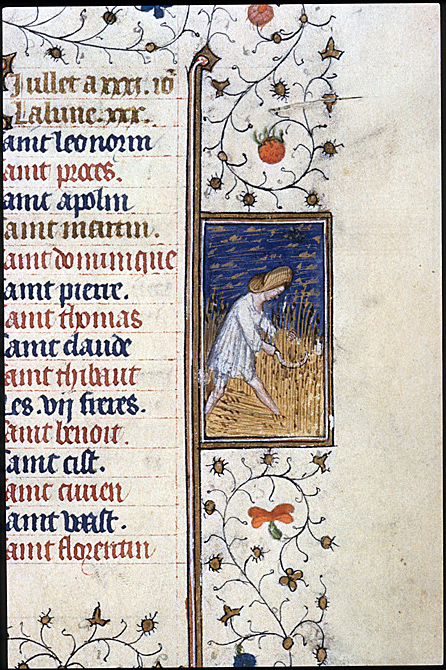 Juillet a xxxi. io
La lune. xxx.
Saint leonorin
saint proces.
Saint apolin
saint martin.
saint dominique
Saint pierre.
saint thomas
Saint claude
saint thibaut
Les. vij freres.
saint benoit.
Saint cist.
saint turien
Saint vaast.
saint florentin